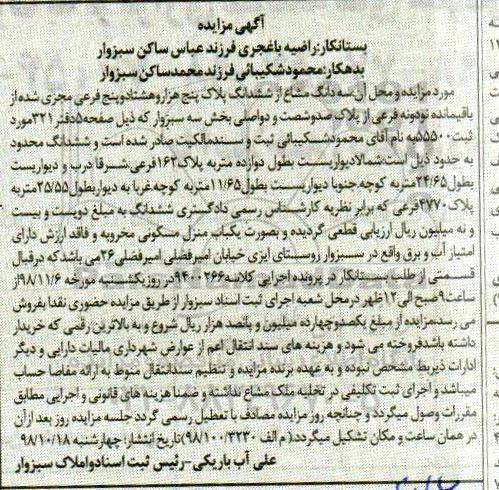 آگهی مزایده
بستانکار:راضیه باغجری فرزند عباس ساکن سبزوار
بدهکار:محمودشکیبائی فرزندمحمدساکن سبزوار
موردمزایده و محل آن:سه دانگ مشاع از ششدانگ پلاک پنج هزاروهشتادوپنج فرعی مجزی شده از
باقیمانده نودونه فرعی از پلاک صدوشصت و دواصلی بخش سه سبزوار که ذیل صفحه۵دفتر۳۲۱مورد
ثبت۵۵۵۰۰به نام آقای محمودشکیبائی ثبت و سندمالکیت صادر شده است و ششدانگ محدود
به حدود ذیل است:شمالادیواریست بطول دوازده متربه پلاک۱۶۲فرعی،شرقا درب و دیواریست
بطول۲۴/۶۵متربه کوچه،جنوبا دیواریست بطول۱۱/۶۵متربه کوچه،غربا به دیواربطول۲۵/۵۵متربه
پلاک۳۷۷۰فرعی که برابر نظریه کارشناس رسمی دادگستری ششدانگ به مبلغ دویست و بیست
و نه میلیون ریال ارزیابی قطعی گردیده و بصورت یکباب منزل مسکونی مخروبه و فاقد ارزش دارای
امتیاز آب و برق واقع در سبزوار روستای ایزی خیابان امیرفضلی امیرفضلی۲۶می باشدکه درقبال
قسمتی از طلب بستانکار در پرونده اجرایی کلاسه۹۴۰۰۲۶۶در روزیکشنبه مورخه ۹۸/۱۱/۶از
ساعت۹صبح الی۱۲ظهر درمحل شعبه اجرای ثبت اسناد سبزوار از طریق مزایده حضوری نقدا بفروش
می رسد،مزایده از مبلغ یکصدوچهارده میلیون و پانصد هزار ریال شروع و به بالاترین رقمی که خریدار
داشته باشدفروخته می شود و هزینه های سند انتقال اعم از عوارض شهرداری مالیات دارایی و دیگر
ادارات ذیربط مشخص نبوده و به عهده برنده مزایده و تنظیم سندانتقال منوط به ارائه مفاصا حساب
میباشد و اجرای ثبت تکلیفی در تخلیه ملک مشاع نداشته و ضمنا هزینه های قانونی و اجرایی مطابق
مقررات وصول میگردد و چنانچه روز مزایده مصادف با تعطیل رسمی گردد جلسه مزایده روز بعد ازآن
در همان ساعت و مکان تشکیل میگردد.(م الف ۹۸/۱۰۰/۳۲۳۰)تاریخ انتشار: چهارشنبه ۹۸/۱۰/۱۸
علی آب باریکی-رئیس ثبت اسنادواملاک سبزوار